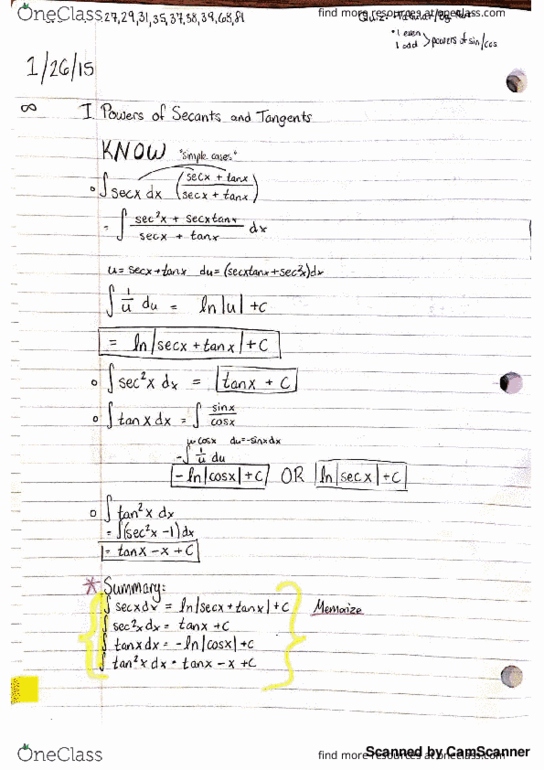 OneClass
27,29,31,35,37,38,39,68,81
find more resources at oneclass.com
• 1 even
1 odd > powers of sin/cos
1/26/15
∞ I Powers of Secants and Tangents
KNOW "simple cases"
∘ ∫ secx dx (secx + tanx / secx + tanx)
= ∫ sec²x + secxtanx / secx + tanx dx
u = secx + tanx du = (secxtanx + sec²x)dx
∫ 1/u du = ln|u| + C
= ln|secx + tanx| + C
∘ ∫ sec²x dx = tanx + C
∘ ∫ tanx dx = ∫ sinx/cosx
u= cosx du=-sinxdx
-∫ 1/u du
-ln|cosx| + C OR ln|secx| + C
∘ ∫ tan²x dx
= ∫(sec²x -1)dx
= tanx - x + C
* Summary:
∫ secxdx = ln|secx + tanx| + C Memorize
∫ sec²x dx = tanx + C
∫ tanx dx = -ln|cosx| + C
∫ tan²x dx = tanx - x + C
OneClass
find more resources at oneclass.com
Scanned by CamScanner